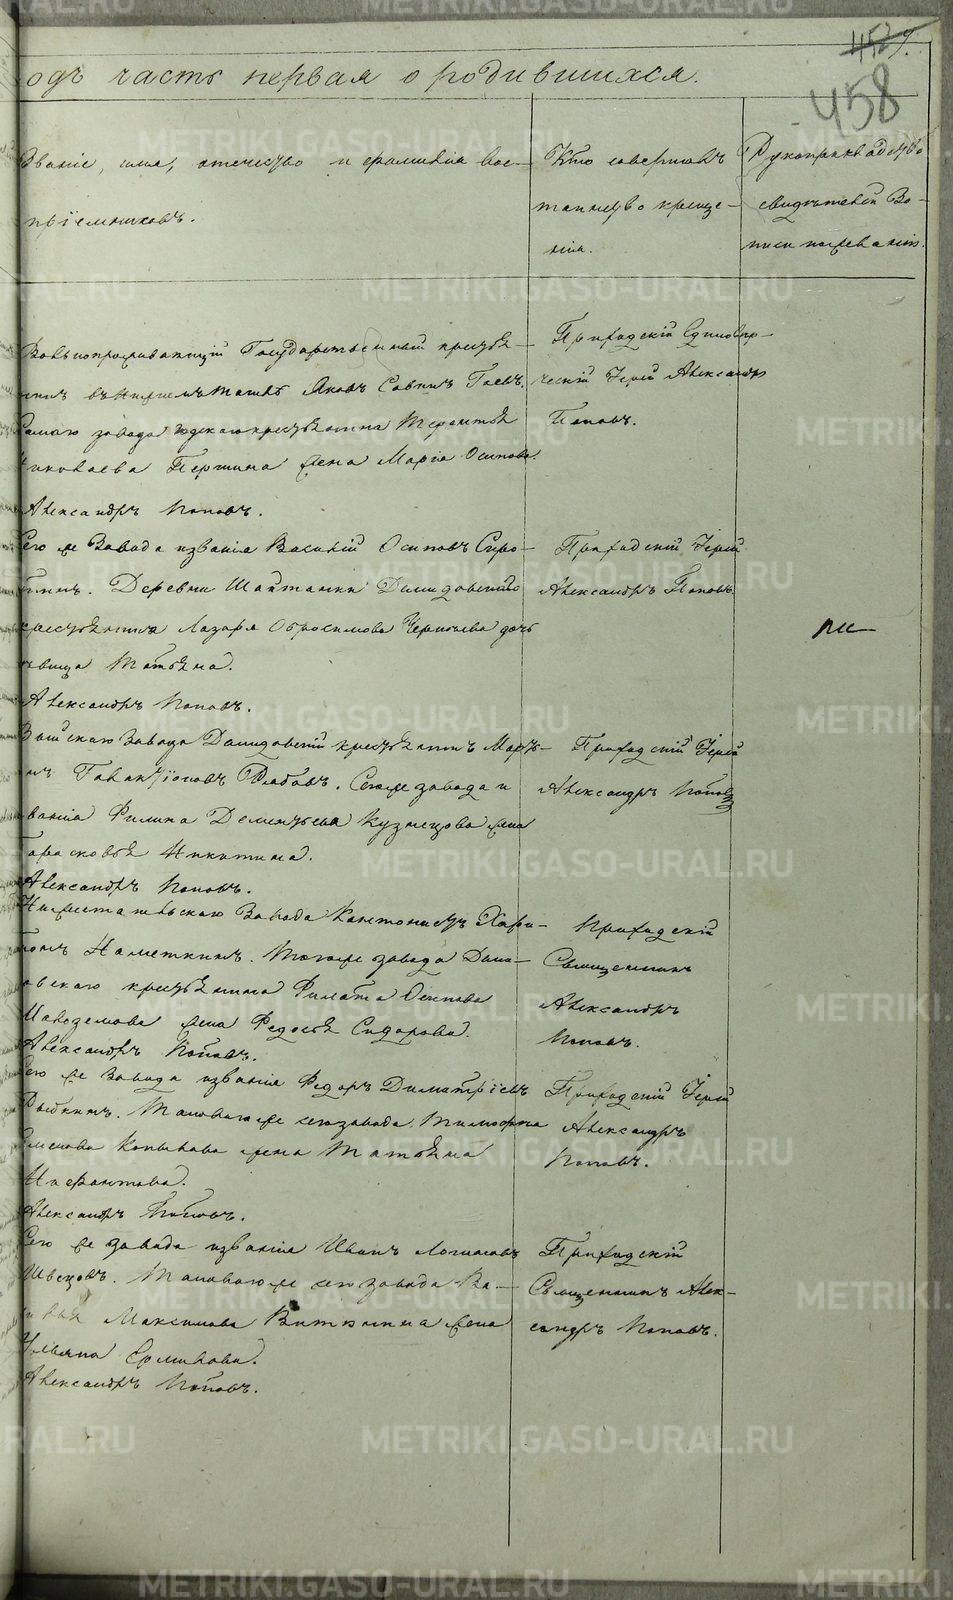 458
одъ часть первая о родившихся.
Званіе, имя, отечество и фамилія вос-
пріемниковъ.
Кто совершалъ
таинство креще-
нія.
Рукоприкладство
свидѣтелей За-
писи по желанію.
Государственный крестья-
нинъ Яковъ Савинъ
завода крестьянина Терентья
Николаева Першина жена Марія Осипова.
Александръ Поповъ.
Приходскій Единовѣр-
ческій Іерей Александръ
Поповъ.
Сего же Завода и званія Василій Осиповъ Сиро-
Деревни Шайтанки Демидовскаго
крестьянина Лазаря Обросимова дочь
дѣвица Татьяна.
Александръ Поповъ.
Приходскій Іерей
Александръ Поповъ.
Завода Демидовскій крестьянинъ Марты-
нъ Галактіоновъ Рябовъ. Сего же завода и
званія Филипа Дементьева Кузнецова жена
Парасковья Никитина.
Александръ Поповъ.
Приходскій Іерей
Александръ Поповъ
Нижнетагильскаго Завода Кантонистъ Хари-
тонъ Наметкинъ. Того же завода Деми-
довскаго крестьянина Филата Осипова
жена Федосья Сидорова.
Александръ Поповъ.
Приходскій
Священникъ
Александръ
Поповъ.
Сего же Завода и званія Федоръ Димитріевъ
Таковаго же сего завода Тимофея
Семенова Копылова жена Татьяна
Александръ Поповъ.
Приходскій Іерей
Александръ
Поповъ.
Сего же завода и званія Иванъ Логиновъ
Швецовъ. Таковаго же сего завода Ва-
силья Максимова жена
Ульяна Ермилова.
Александръ Поповъ.
Приходскій
Священникъ Алек-
сандръ Поповъ.
METRIKI.GASO-URAL.RU